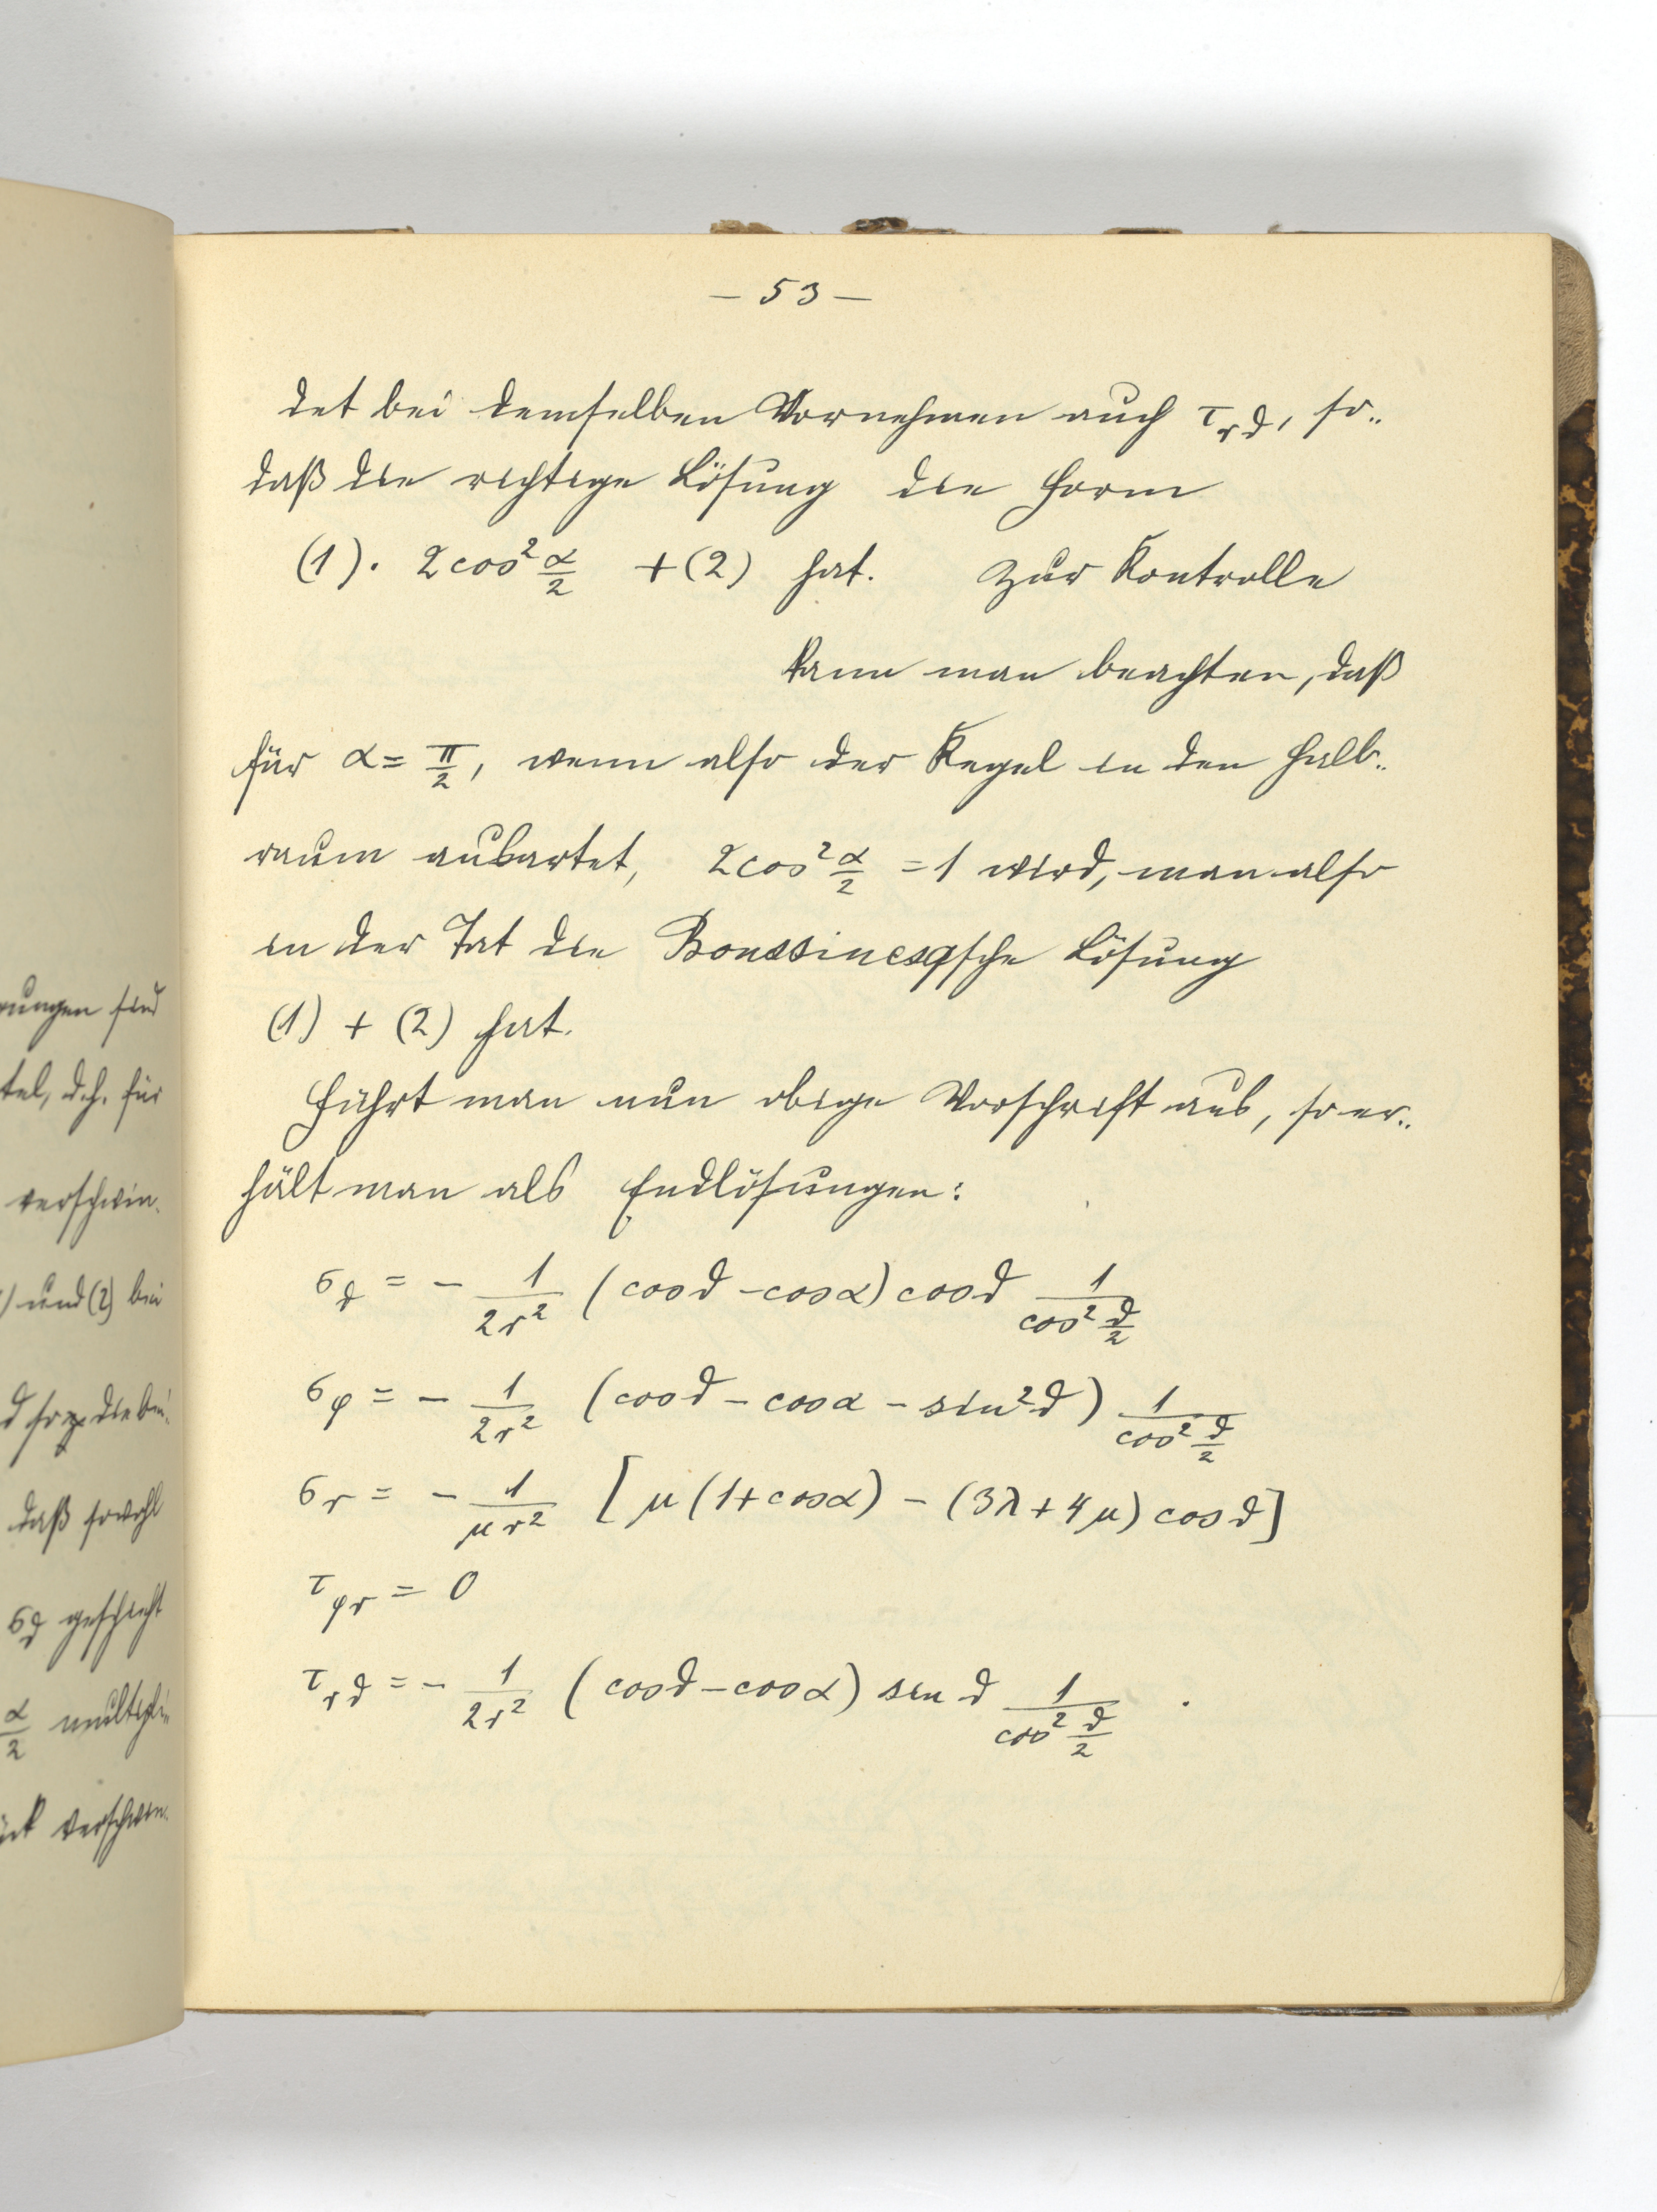 – 53 –
det bei demselben Vornehmen auch τ_rϑ, so=
daß die richtige Lösung die Form
(1). 2cos² α/2 + (2) hat. Zur Kontrolle
kann man beachten, daß
für α = π/2, wenn also der Kegel in den Halb=
raum ausartet, 2cos² α/2 = 1 wird, man also
in der Tat die Boussinesqsche Lösung
(1) + (2) hat.
Führt man nun obige Vorschrift aus, so er=
hält man als Endlösungen:
σ_ϑ = – 1/2r² (cosϑ – cosα) cosϑ 1/cos² ϑ/2
σ_φ = – 1/2r² (cosϑ – cosα – sin²ϑ) 1/cos² ϑ/2
σ_r = – 1/μr² [μ(1+cosα) – (3λ+4μ) cosϑ]
τ_φr = 0
τ_rϑ = – 1/2r² (cosϑ – cosα) sin ϑ 1/cos² ϑ/2 .
ungen sind
tel, d.h. für
verschwin=
) und (2) bei
daß sowohl
σ_ϑ geschieht
α/2 multipli=
verschwin=